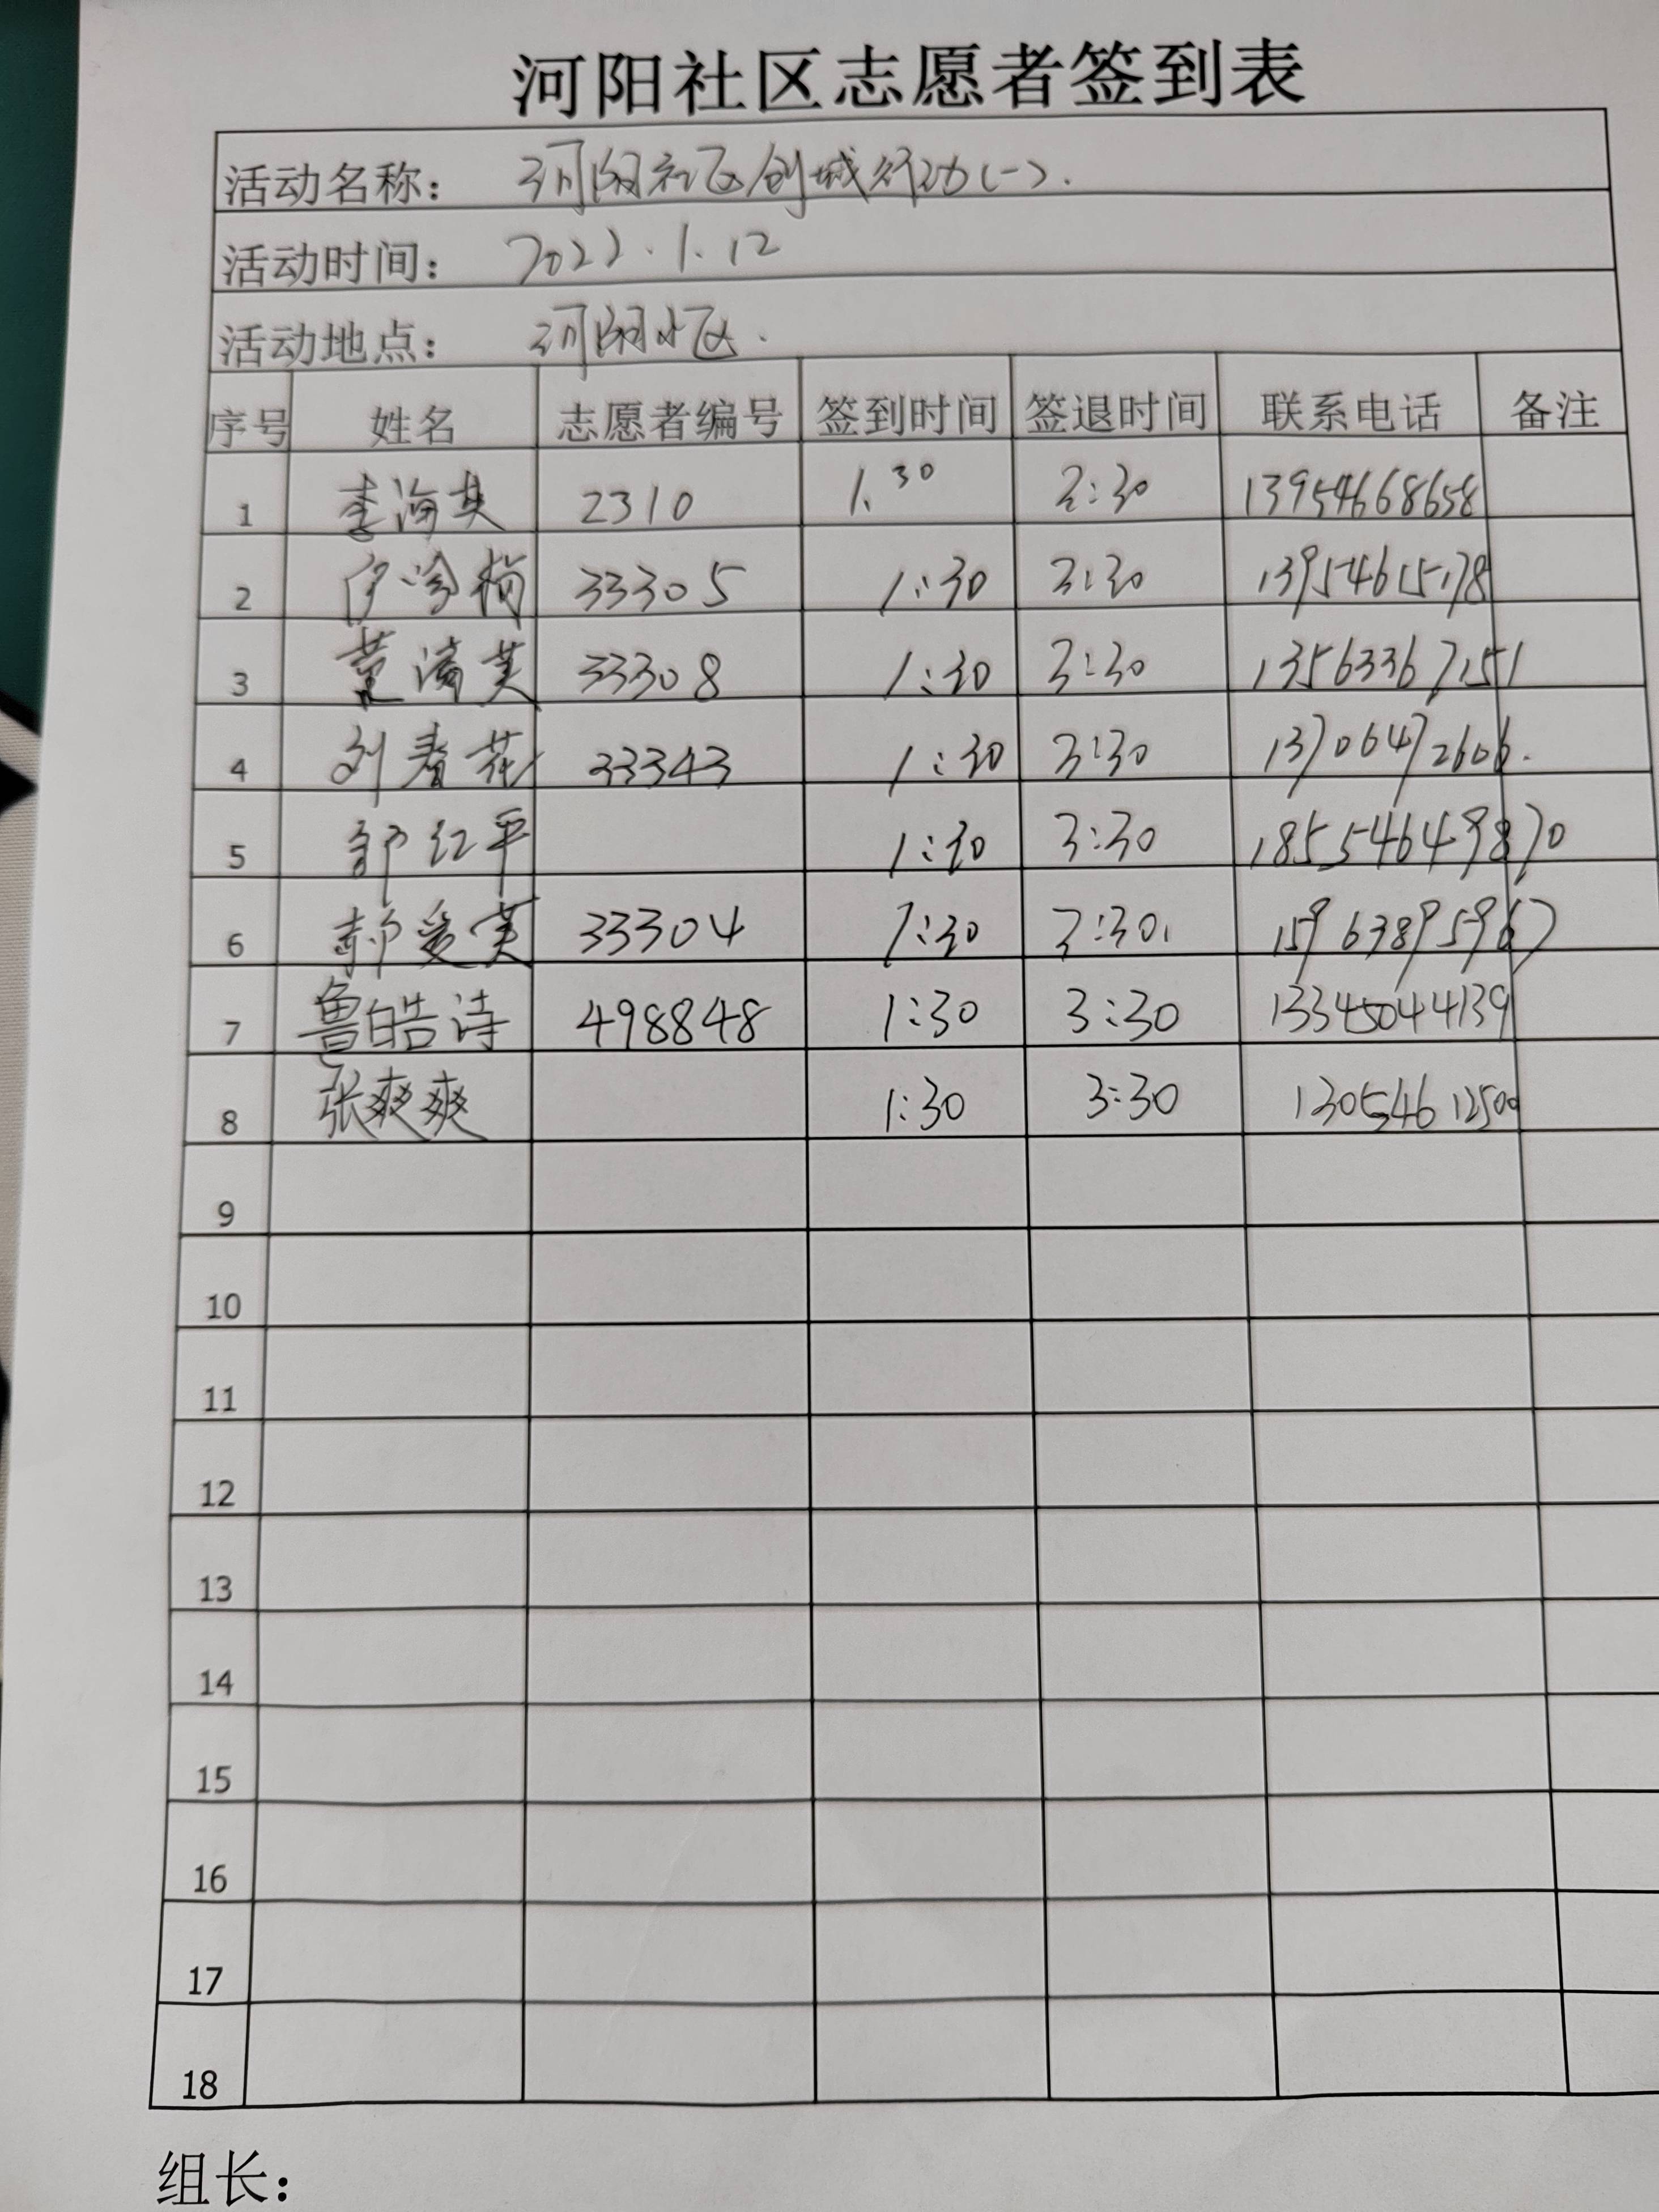 河阳社区志愿者签到表
活动名称： 河阳社区创城行动(一).
活动时间： 2022.1.12
活动地点： 河阳小区.
序号 姓名 志愿者编号 签到时间 签退时间 联系电话 备注
1 李海英 2310 1.30 3:30 13954668658
2 33305 1:30 3:30 13954615178
3 董清芙 33308 1:30 3:30 13563367151
4 刘春花 33343 1:30 3:30 13706472606.
5 舒红平 1:30 3:30 18554649870
6 郝爱芙 33304 1:30 3:30. 15963895967
7 鲁皓诗 498848 1:30 3:30 13345044139
8 张爽爽 1:30 3:30 13054612500
9
10
11
12
13
14
15
16
17
18
组长：